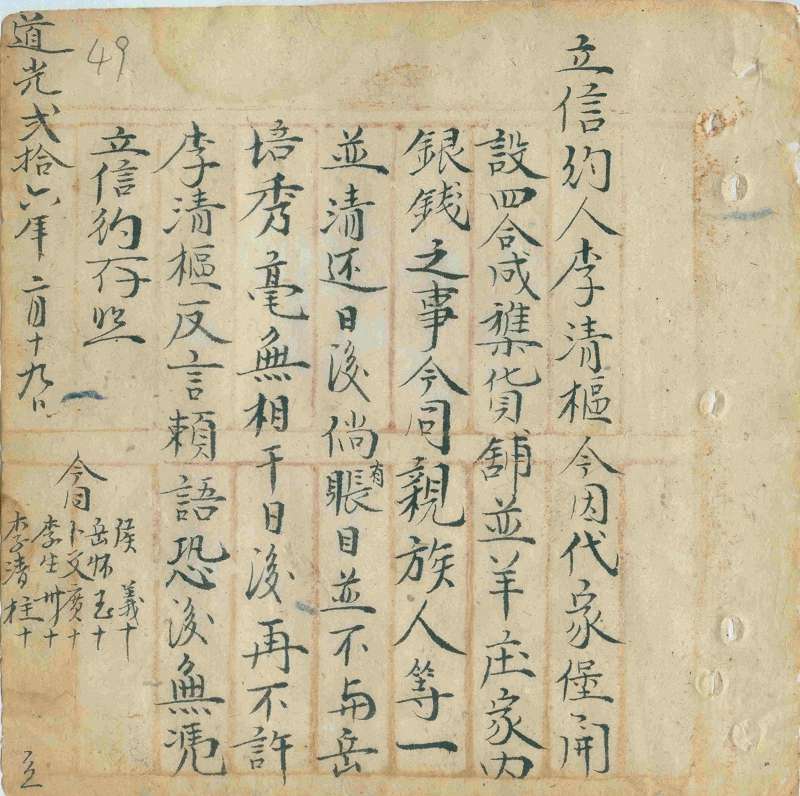 立信約人李清樞今因代家堡開
設四合咸襍貨舖並羊庄家内
銀錢之事今同親族人等一
並清还日後倘有賬目並不与岳
培秀毫無相干日後再不許
李清樞反言賴語恐後無凴
立信約存照
49
道光弍拾六年二月十九日 立
今同
侯義十
岳怀玉十
卜文廣十
李生卅十
李清柱十